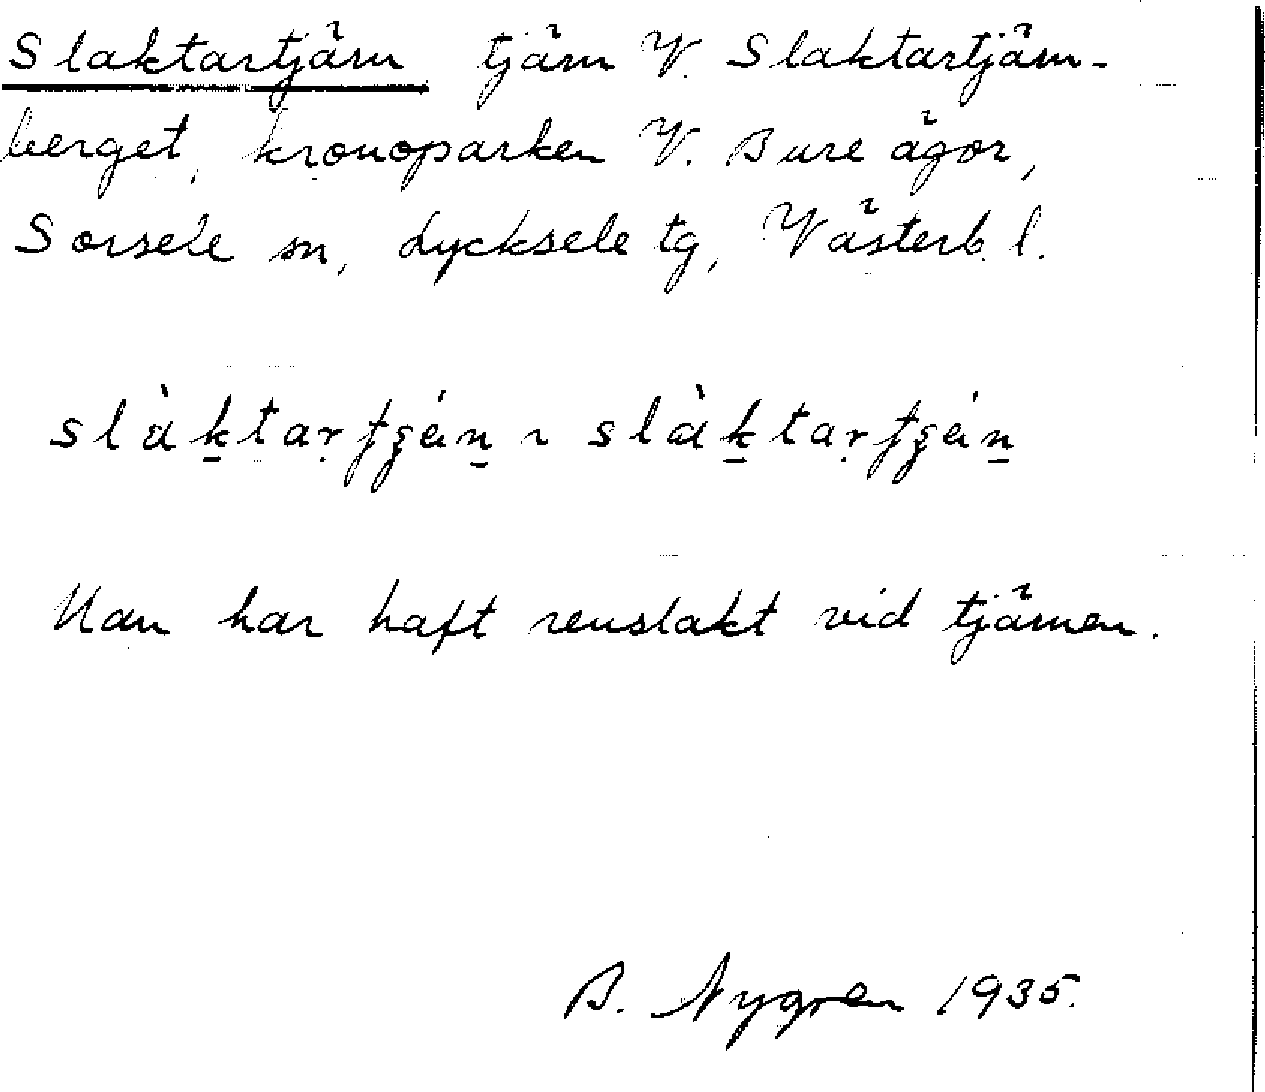 Slaktartjärn tjärn V. Slaktartjärn-
berget, kronoparken V. Bure ägor,
Sorsele sn, Lycksele tg, Västerb. l.
Man har haft renslakt vid tjärnen.
B. Nygren 1935.